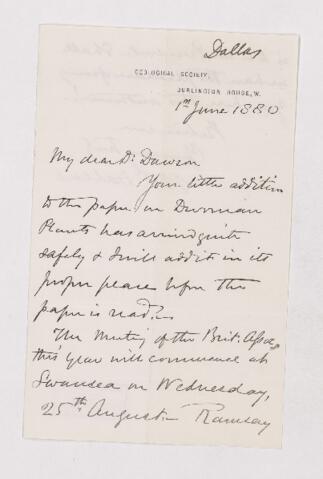 Dallas
GEOLOGICAL SOCIETY,
BURLINGTON HOUSE, W.
1st June 1880
My dear Dr Dawson
Your little addition
to the paper on Devonian
Plants has arrived quite
safely & I will add it in its
proper place before the
paper is read.
The Meeting of the Brit. Assoc.
this year will commence at
Swansea on Wednesday,
25th August - Ramsay